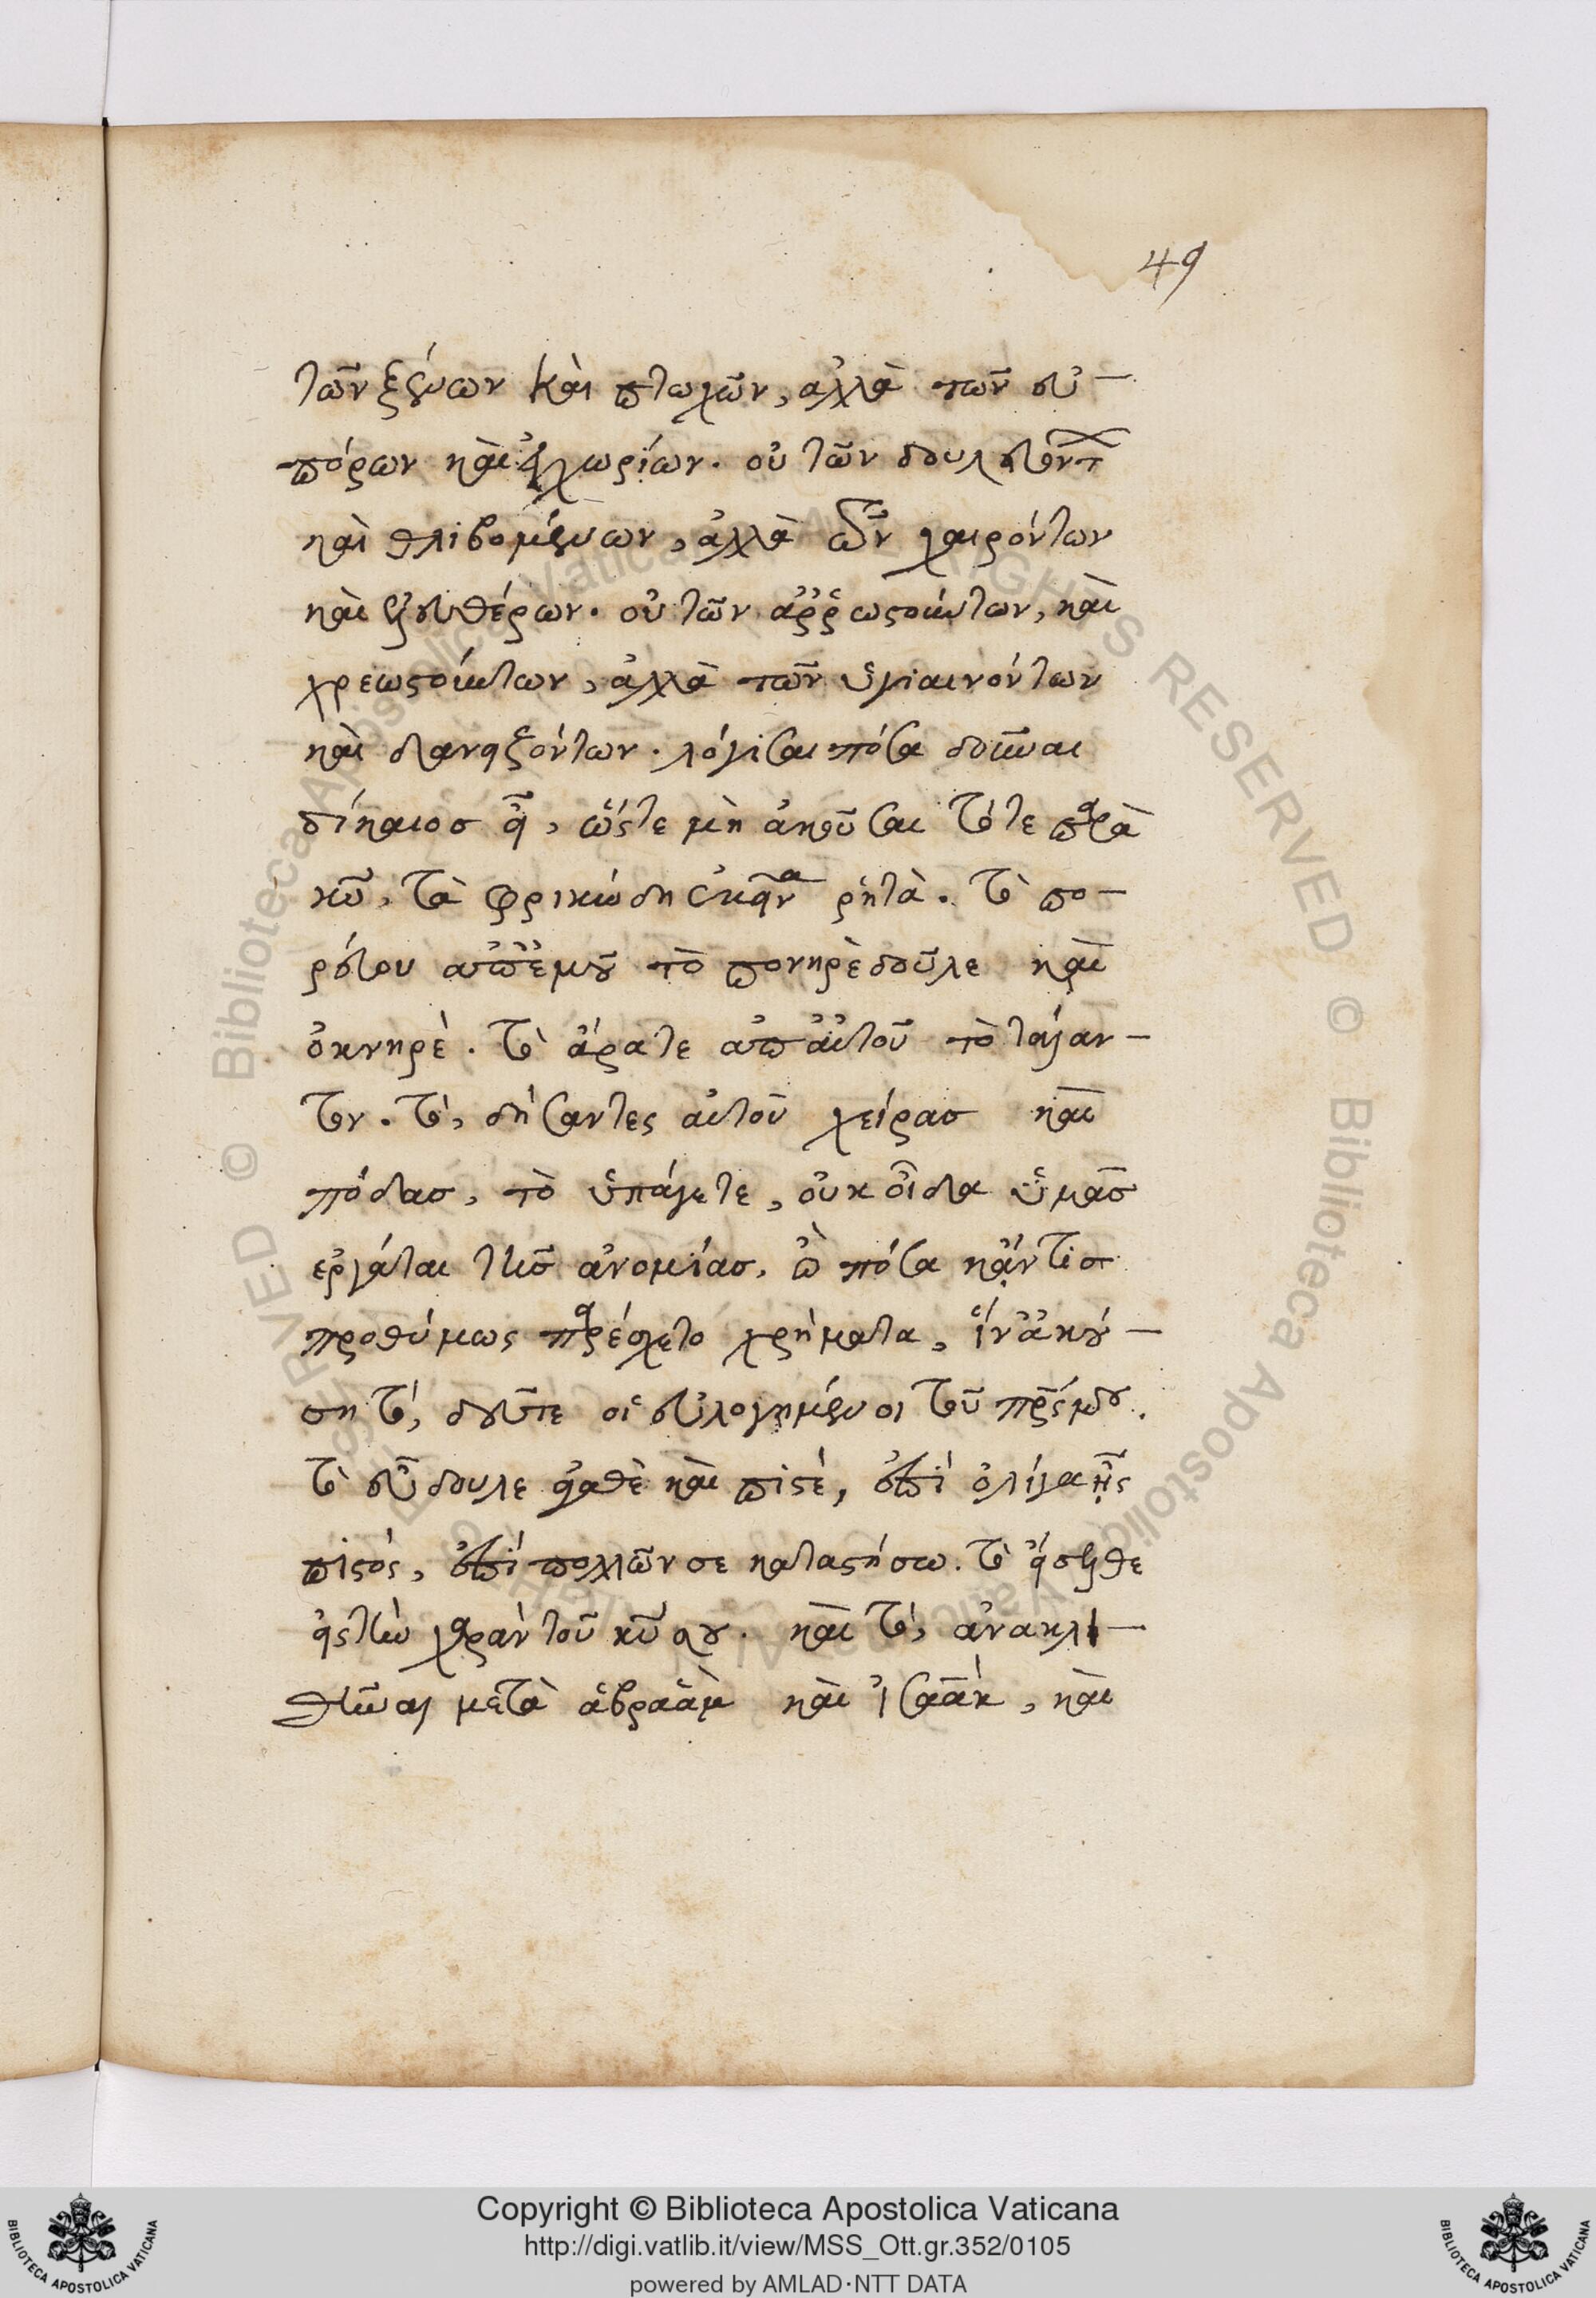 49
τῶν ξένων καὶ πτωχῶν, ἀλλὰ τῶν εὐ-
πόρων καὶ ἐγχωρίων. οὐ τῶν δουλευόντ
καὶ θλιβομένων, ἀλλὰ τῶν χαιρόντων
καὶ ἐλευθέρων. οὐ τῶν ἀῤῥωστούντων, καὶ
χρεωστούντων, ἀλλὰ τῶν ὑγιαινόντων
καὶ δανειζόντων. λόγισαι πόσα δοῦναι
δίκαιος εἶ, ὥστε μὴ ἀκοῦσαι τότε παρὰ
κῡ, τὰ φρικώδη ἐκεῖνα ῥητά. τὸ πο-
ρεύου ἀπ' ἐμοῦ τὸ πονηρὲ δοῦλε καὶ
ὀκνηρέ. τὸ ἄρατε ἀπ' αὐτοῦ τὸ τάλαν-
τον. τό, δήσαντες αὐτοῦ χεῖρας καὶ
πόδας, τὸ ὑπάγετε, οὐκ οἶδα ὑμᾶς
ἐργάται τῆς ἀνομίας. ὢ πόσα κἄν τις
προθύμως παρέσχετο χρήματα, ἵν' ἀκού-
ση τό, δεῦτε οἱ εὐλογημένοι τοῦ πρς μου.
τὸ εὖ δοῦλε ἀγαθὲ καὶ πιστέ, ἐπὶ ὀλίγα ἦς
πιστός, ἐπὶ πολλῶν σε καταστήσω. τὸ εἴσελθε
εἰς τὴν χαρὰν τοῦ κῡ σου. καὶ τό, ἀνακλι-
θῆναι μετὰ ἀβραὰμ καὶ ἰσαάκ, καὶ
Copyright © Biblioteca Apostolica Vaticana
http://digi.vatlib.it/view/MSS_Ott.gr.352/0105
powered by AMLAD·NTT DATA